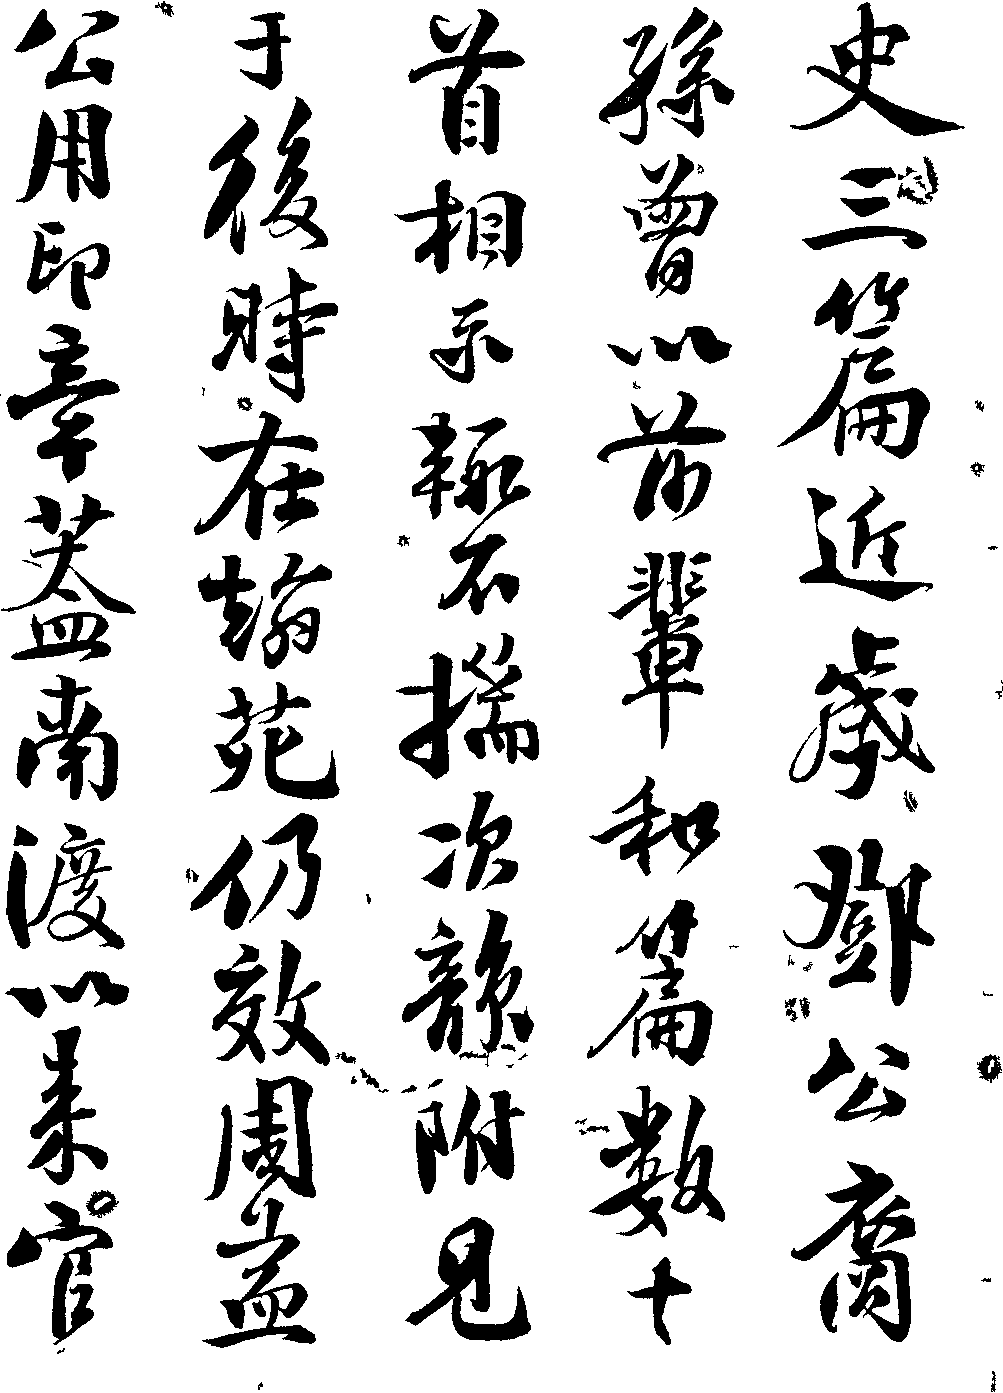 史三篇近歲鄧公裔
孫曾以前輩和篇數十
首相示輒不揣次韻附見
于後時在翰苑仍效周益
公用印章蓋南渡以來官